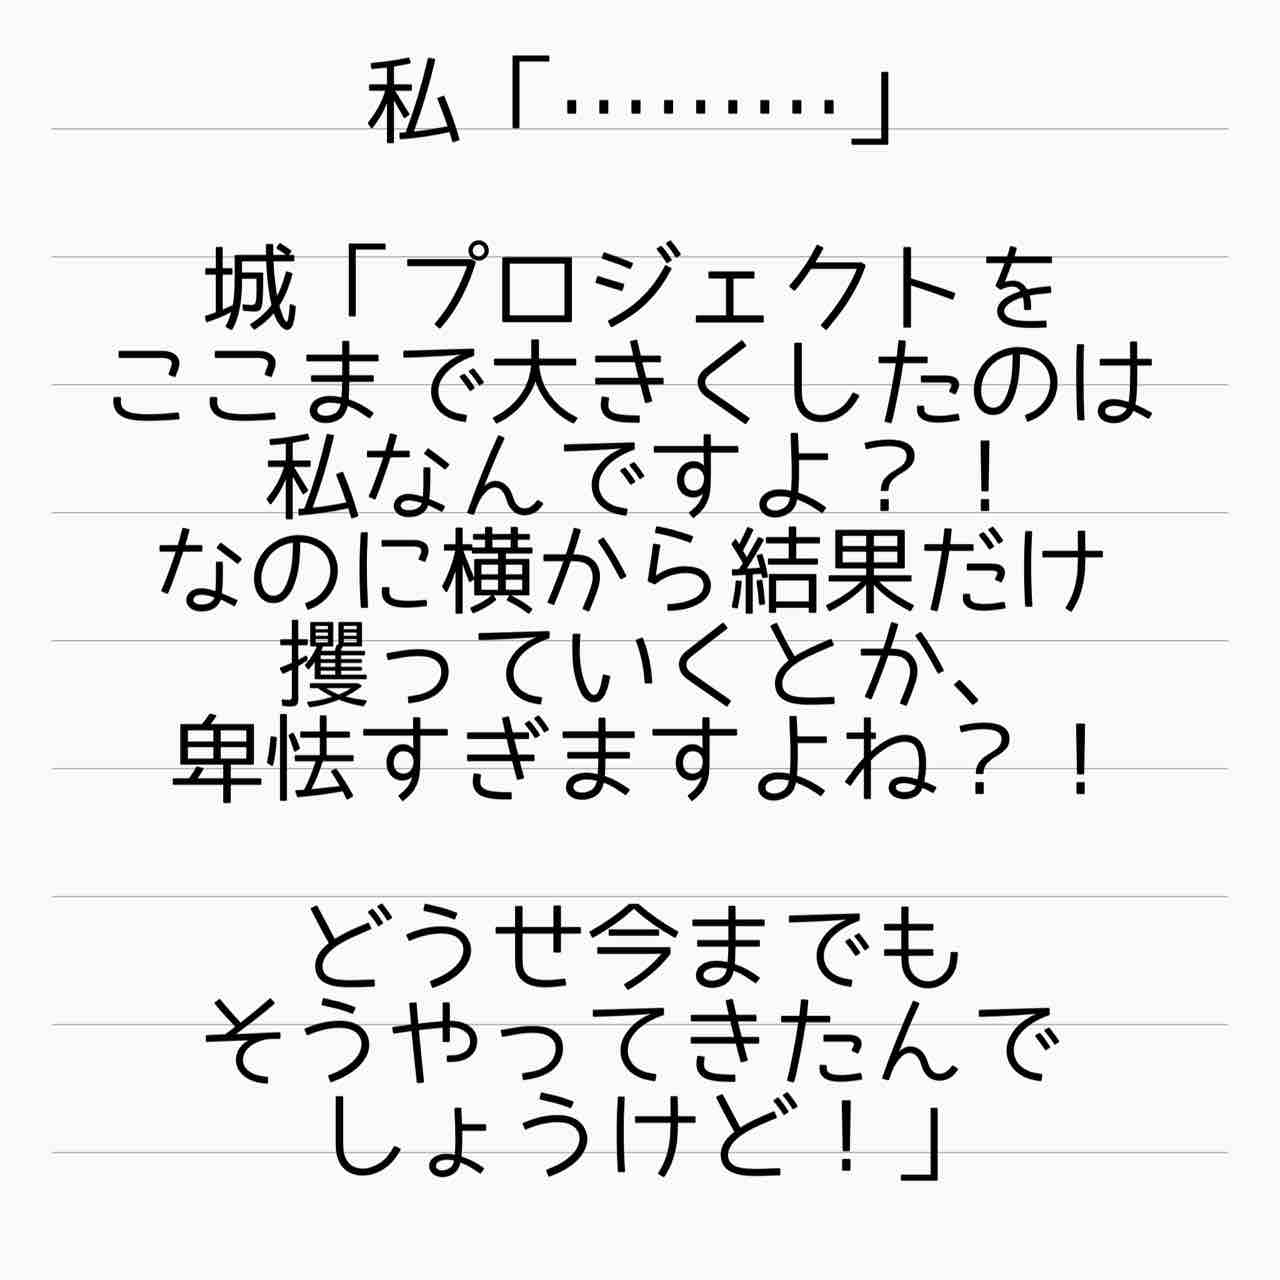 私「………」
城「プロジェクトを
ここまで大きくしたのは
私なんですよ？！
なのに横から結果だけ
攫っていくとか、
卑怯すぎますよね？！
どうせ今までも
そうやってきたんで
しょうけど！」